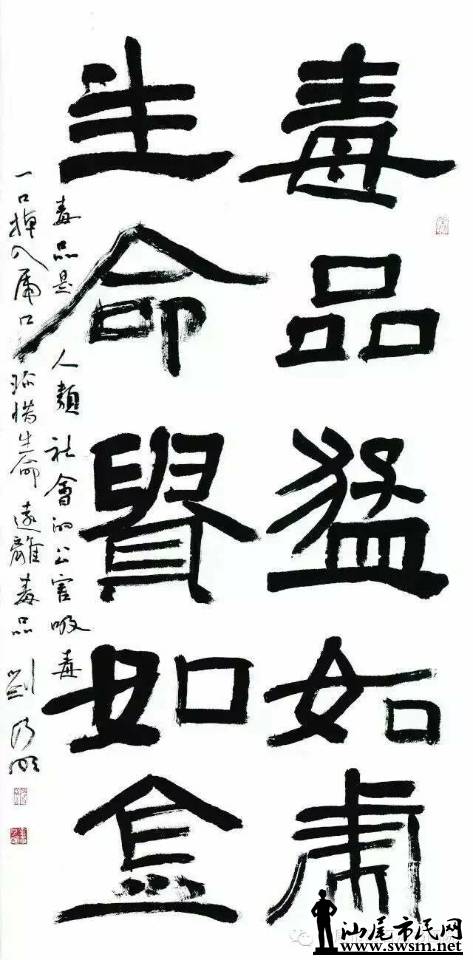 毒品猛如虎
生命貴如金
毒品是人類社會的公害吸毒
一口掉入虎口珍惜生命遠離毒品 劉
汕尾市民网
www.swsm.net